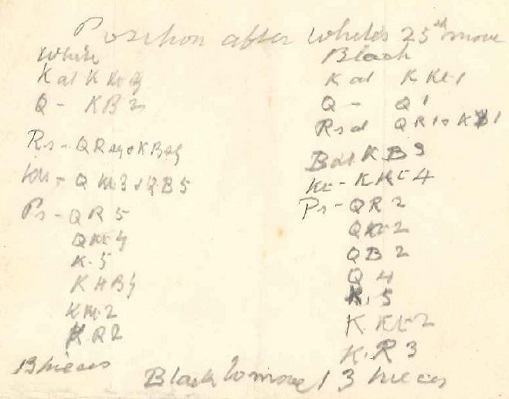 Position after White's 25th move
White
K at K Kt sq
Q - KB 2
Rs - QR sq & KB sq
Kts - Q Kt 3 & QB 5
Ps - QR 5
QKt 4
K. 5
K Kt 2
K R 2
13 pieces
Black
K at K Kt 1
Q - Q 1
Rs at QR 1 & KB 1
B at KB 3
Kt - K Kt 4
Ps - QR 2
QKt 2
QB 2
Q 4
K. 5
K. Kt 2
K. R 3
Black to move 13 pieces